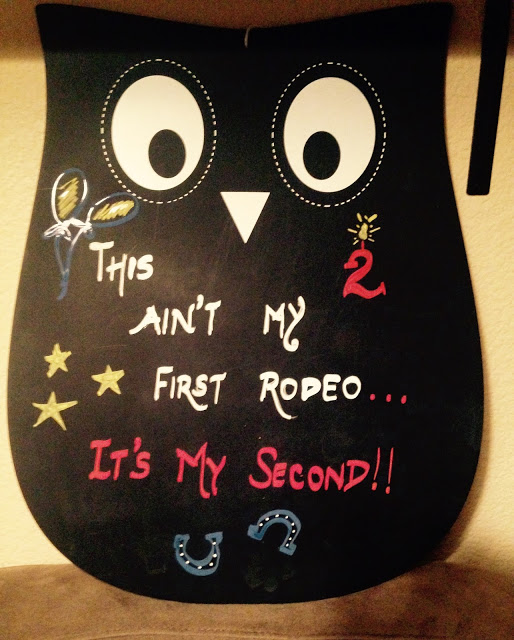 2
This
Ain't My
First Rodeo...
It's My Second!!